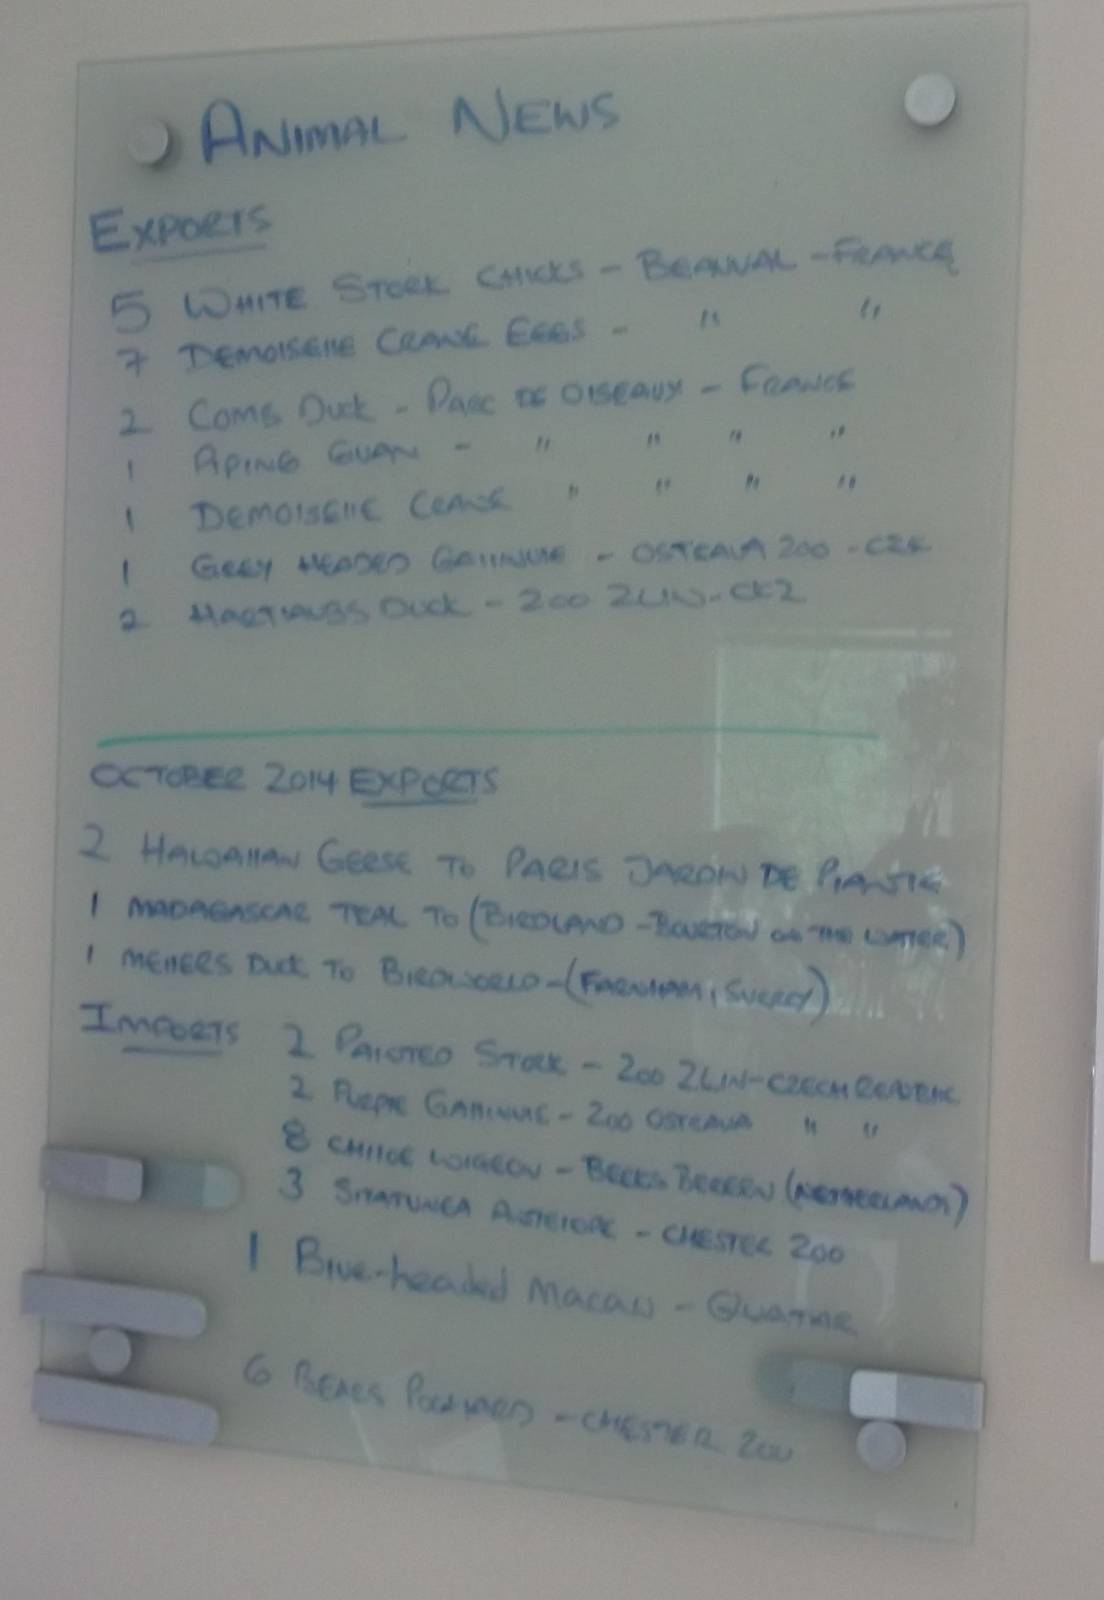 ANIMAL NEWS
EXPORTS
5 WHITE STORK CHICKS - BEAUVAL - FRANCE
7 DEMOISELLE CRANE EGGS - " "
2 COMB DUCK - PARC DE OISEAUX - FRANCE
1 PIPING GUAN - " " " "
1 DEMOISELLE CRANE " " " "
1 GREY HEADED GALLINULE - OSTRAVA ZOO - CZK
2 HARTLAUBS DUCK - ZOO ZLIN - CKZ
OCTOBER 2014 EXPORTS
2 GEESE TO PARIS JARDIN DE PLANTES
1 MADAGASCAR TEAL TO (BIRDLAND - BOURTON ON THE WATER)
1 MELLERS DUCK TO BIRDWORLD - (FARNHAM, SURREY)
IMPORTS 2 PAINTED STORK - ZOO ZLIN - CZECH REPUBLIC
2 PURPLE GALLINULE - ZOO OSTRAVA " "
8 CHILOE WIGEON - (NETHERLANDS)
3 SITATUNGA ANTELOPE - CHESTER ZOO
1 Blue-headed Macaw - QUATAR
6 BEARS POCHARD - CHESTER ZOO